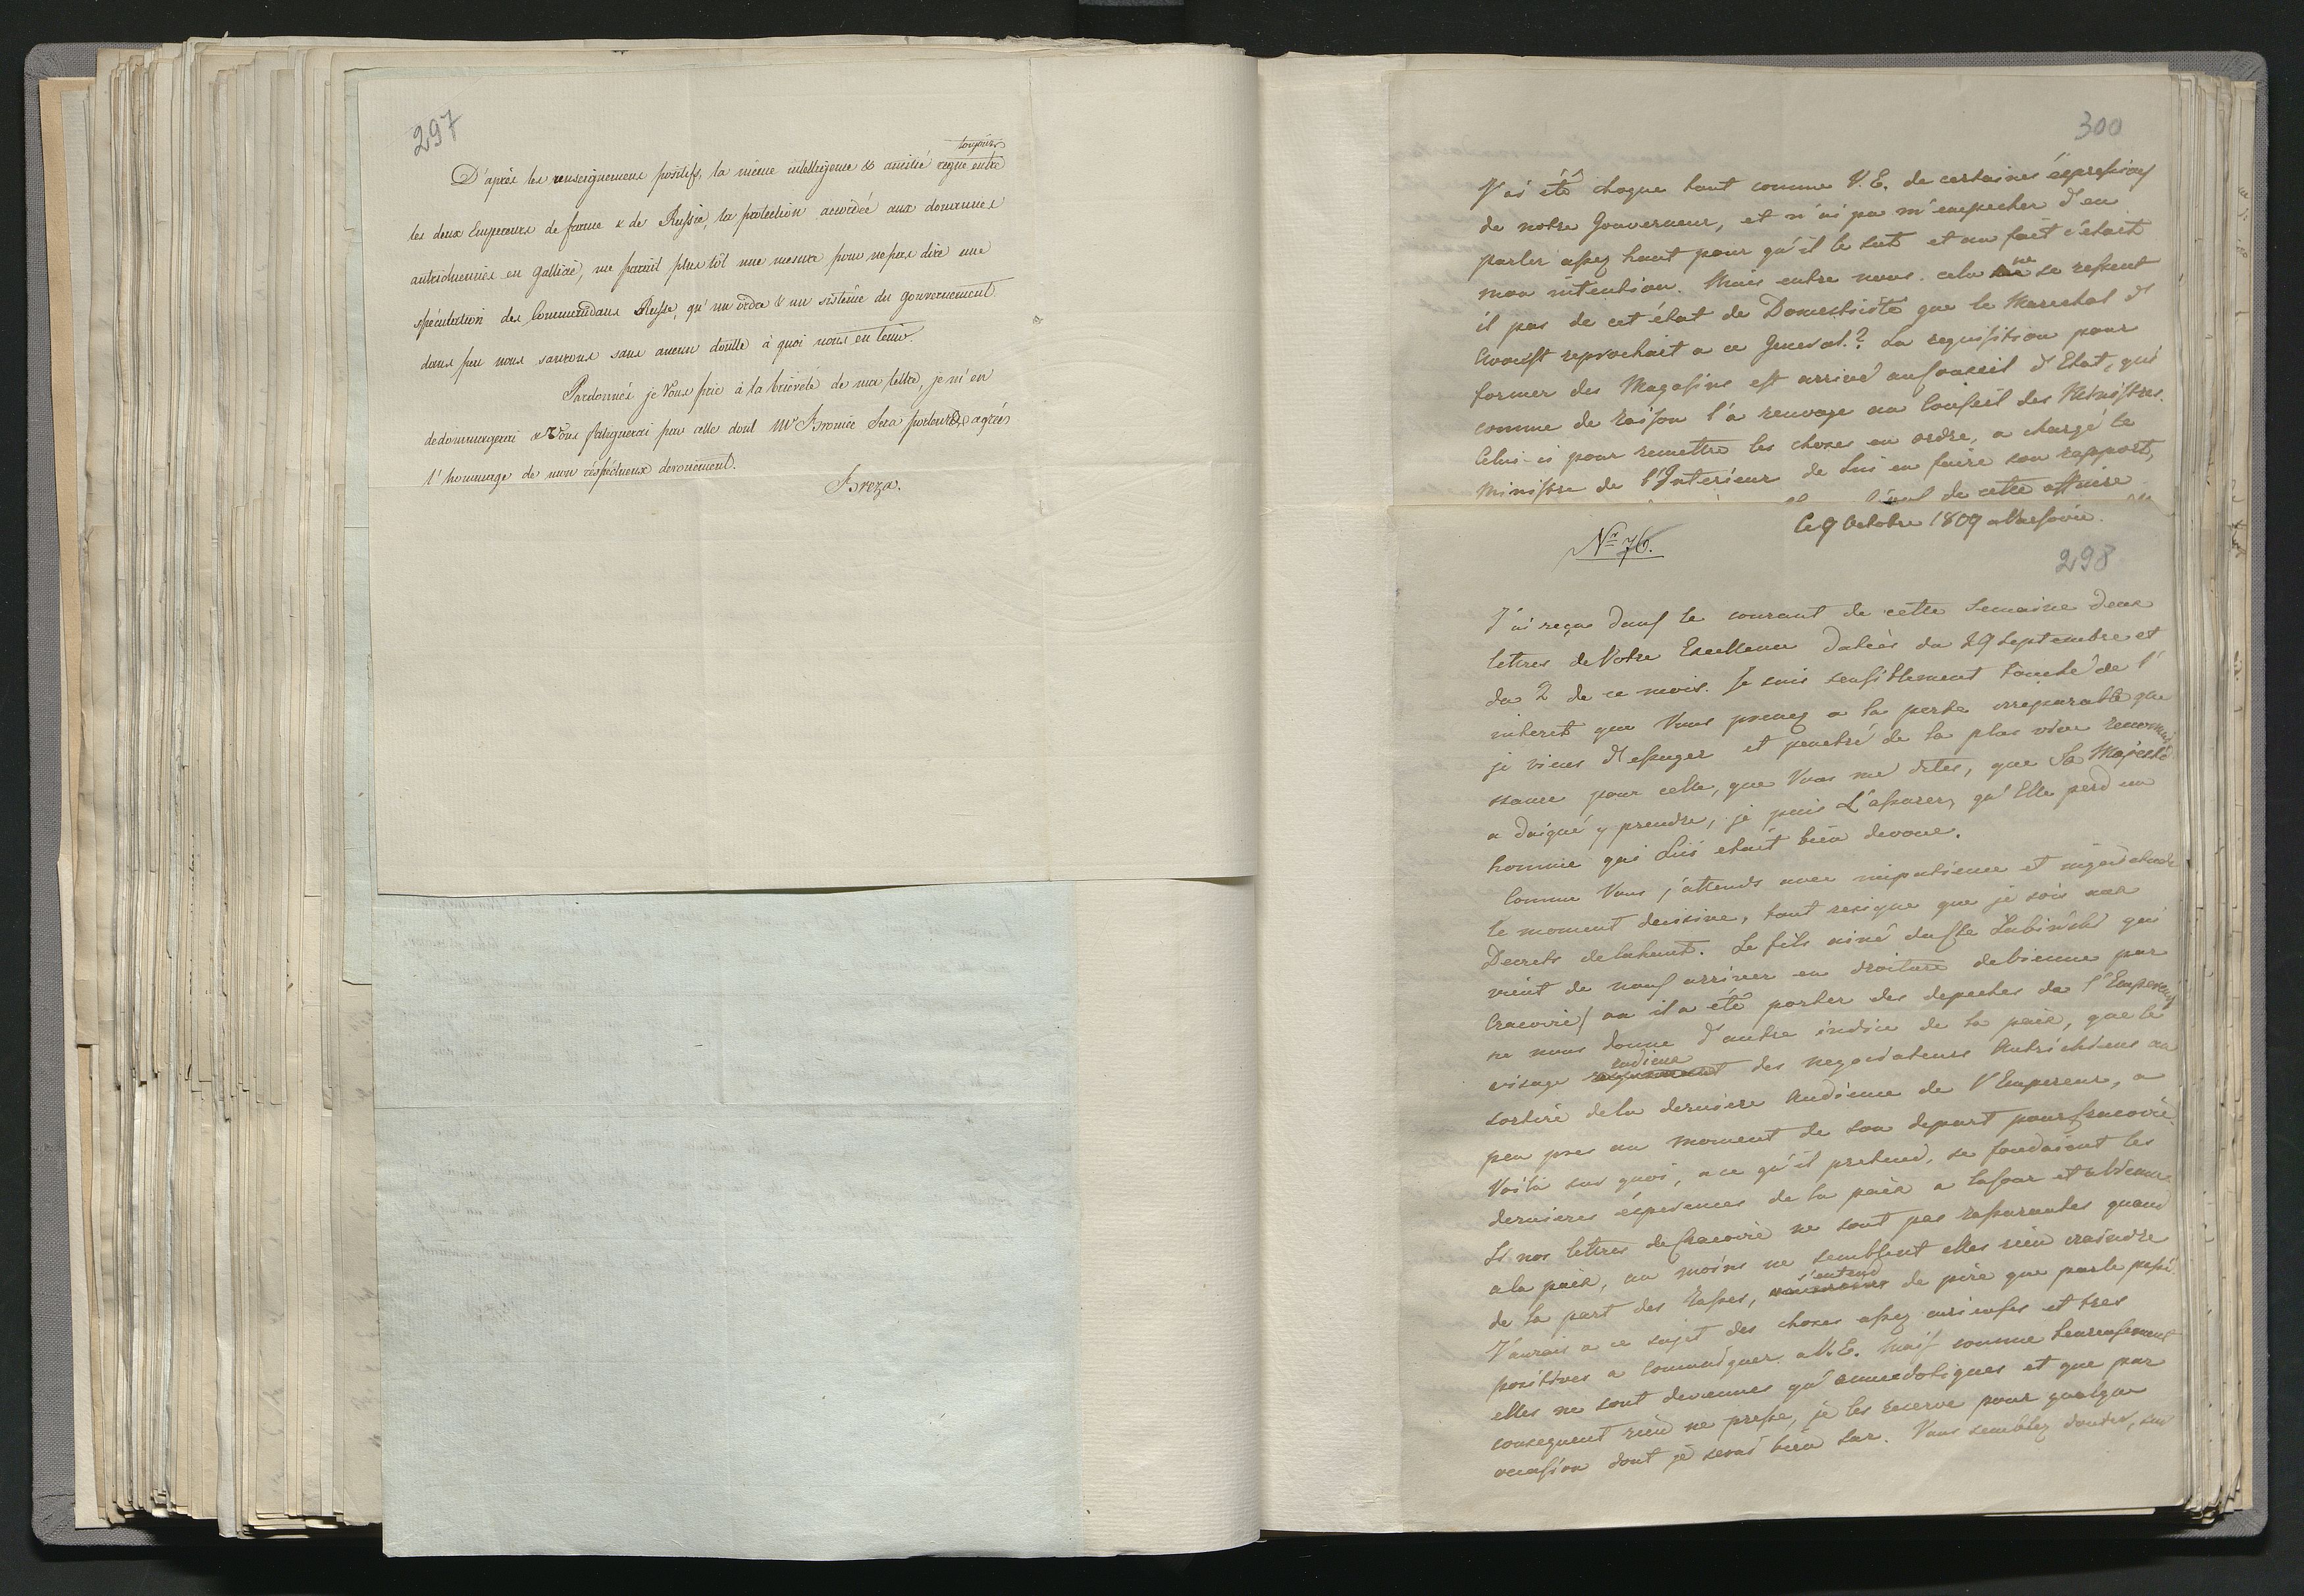 297
toujours
D'après les renseignemens positifs, la même intelligence & amitié regne entre
les deux Empereurs de france & de Russie, la protection accordée aux douannes
autrichiennes en Gallicie, me parait plus tôt une mesure pour ne pas dire une
spéculation des Commendans Russe, qu'un ordre & un sistême du gouvernement
dans peu nous saurons sans aucun doutte à quoi nous en tenir.
Pardonnés je Vous prie à la briéveté de ma lettre, je m'en
dedommagerai & Vous fatiguerai par celle dont Mr Bronice sera porteur, agrées
l'hommage de mon réspéctueux devouement.
Breza.
300
J'ai été choque tout comme V. E. de certaines éxpressions
de notre Gouverneur, et n'ai pu m'empecher d'en
parler assez haut pour qu'il le sut et au fait c'etait
mon intention. Mais entre nous. cela ne se ressent
il pas de cet état de Domesticité que le Marechal d'
reprochait a ce General.? La requisition pour
former des Magasins est arrivé au Conseil d'Etat, qui
comme de raison l'a renvoye au Conseil des Ministres.
Celui-ci pour remettre les choses en ordre, a chargé le
Ministre de l'Interieur de lui en faire son rapport,
de cette affaire
Nr 76.
Ce 9 Octobre 1809 a Varsovie.
298
J'ai reçu dans le courant de cette Semaine deux
lettres de Votre Excellence datées du 29 Septembre et
du 2 de ce mois. Je suis sensiblement touché de l'
interet que Vous prenez a la perte irréparable que
je viens d'essuyer et penetré de la plus vive reconnai
ssance pour celle, que Vous me dites, que Sa Majesté
a daigné y prendre, je puis L'assurer, qu'Elle perd un
homme qui Lui etait bien devoué.
Comme Vous j'attends avec impatience et inquietude
le moment decisive, tout resigne que je sois aux
Decrets de la haut. Le fils ainé du Cte Lubinski qui
vient de nous arriver en droiture de Vienne par
Cracovie/ ou il a été porter des depeches de l'Empereur/
ne nous donne d'autre indice de la paix, que le
radieux
visage des negociateurs Autrichiens au
sortire de la derniere Audience de l'Empereur, a
peu pres au moment de son depart pour Cracovie.
Voila sur quoi, a ce qu'il pretend, se fondaient les
dernieres ésperences de la paix a la Cour et a Vienne.
Si nos lettres de Cracovie ne sont pas rassurantes quand
a la paix, au moins ne semblent elles rien craindre
s'entend
de la part des Russes, de pire que par le passé.
J'aurais a ce sujet des choses assez curieuses et tres
positives a communiquer a V. E. mais comme heureusement
elles ne sont devenues qu'annecdotiques et que par
consequent rien ne presse, je les reserve pour quelque
occasion dont je serai bien sur. Vous semblez douter, sur